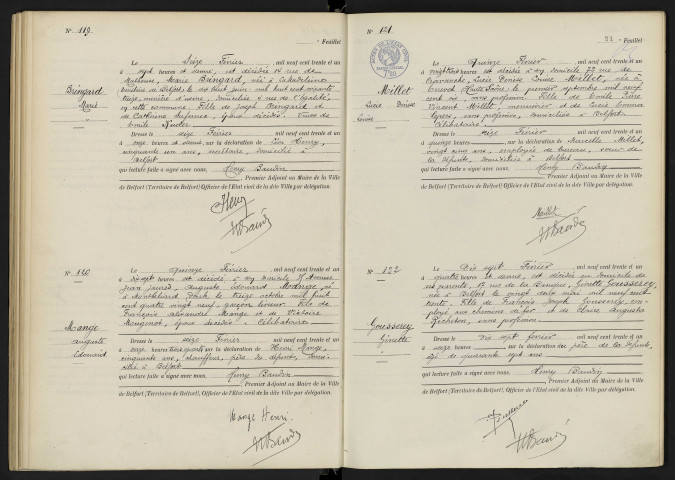 N° 119.
Feuillet
Bringard
Marie
Le Seize Février, mil neuf cent trente et un
à sept heures et demie, est décédée 14 rue de
Mulhouse, Marie Bringard, née à
territoire de Belfort, le dix huit juin mil huit cent soixante
treize, ouvrière d'usine, domiciliée 4 rue de
en cette commune, fille de Joseph Bringard et
de Catherine, époux décédés. Veuve de
Emile
Dressé le seize Février, mil neuf cent trente et un
à onze heures et demie, sur la déclaration de Léon Henry,
cinquante un ans, domicilié à
Belfort
qui lecture faite a signé avec nous, Henry Baudin
, Premier Adjoint au Maire de la Ville
de Belfort (Territoire de Belfort), Officier de l'Etat civil de la dite Ville par délégation.
Henry
N° 120
Mange
Auguste
Edouard
Le quinze Février, mil neuf cent trente et un
à dix sept heures, est décédé à son domicile Avenue
Jean Jaurès, Auguste Edouard Mange, né
à Montbéliard Doubs le treize octobre mil huit
cent quatre vingt neuf, garçon livreur. Fils de
François Alexandre Mange et de Victoire
Mougenot, époux décédés. Célibataire
Dressé le seize Février, mil neuf cent trente et un
à onze heures, sur la déclaration de Henri Mange,
cinquante ans, chauffeur, frère du défunt, domi-
cilié à Belfort
qui lecture faite a signé avec nous, Henry Baudin
, Premier Adjoint au Maire de la Ville
de Belfort (Territoire de Belfort), Officier de l'Etat civil de la dite Ville par délégation.
Mange Henri
N° 121.
21 Feuillet
Millet
Lucie Denise
Louise
Le Quinze Février, mil neuf cent trente et un
à vingt trois heures est décédée à son domicile 72 rue de
Lucie Denise Louise Millet, née à
(Haute Saône) le premier septembre mil neuf
cent, sans profession. Fille de Emile Pierre
Vincent Millet, menuisier, et de Lucie
sans profession, domiciliés à Belfort.
Célibataire
Dressé le seize Février, mil neuf cent trente et un
à quinze heures, sur la déclaration de Marcelle Millet,
vingt ans, employée de bureau, sœur de
la défunte, domiciliée à Belfort
qui lecture faite a signé avec nous, Henry Baudin
, Premier Adjoint au Maire de la Ville
de Belfort (Territoire de Belfort), Officier de l'Etat civil de la dite Ville par délégation.
Millet
N° 122
Gousserey
Ginette
Le Dix sept Février, mil neuf cent trente et un
à quatre heures et demie, est décédée au domicile de
ses parents, 17 rue de la, Ginette Gousserey,
née à Belfort le vingt mil neuf cent
trente. Fille de François Joseph Gousserey, em-
ployé aux chemins de fer et de Claire Augusta
sans profession
Dressé le Dix sept février, mil neuf cent trente et un
à onze heures, sur la déclaration du père de la défunte,
âgé de quarante sept ans
qui lecture faite a signé avec nous, Henry Baudin
, Premier Adjoint au Maire de la Ville
de Belfort (Territoire de Belfort), Officier de l'Etat civil de la dite Ville par délégation.